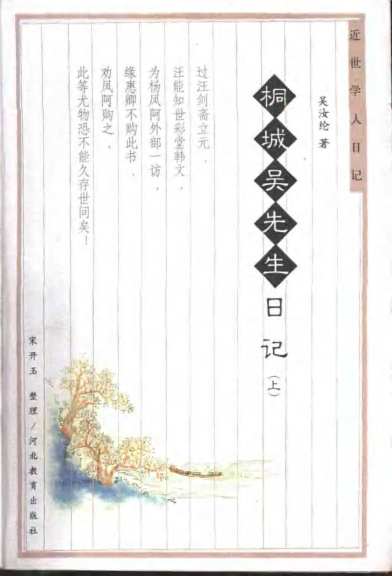 近世学人日记
吴汝纶 著
桐城吴先生日记
(上)
过汪剑斋立元，
汪能知世彩堂韩文，
为杨凤阿外部一访，
缘惠卿不购此书，
劝凤阿购之，
此等尤物恐不能久存世间矣！
宋开玉 整理/河北教育出版社